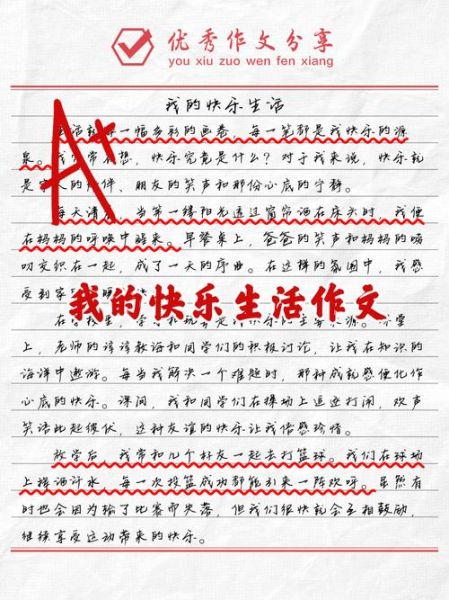 优秀作文分享
you xiu zuo wen fen xiang
我的快乐生活
A+
一幅多彩的画卷，每一笔都是我快乐的源
泉。我常常在想，快乐究竟是什么？对于我来说，快乐就
是家人的陪伴、朋友的笑声和那份心底的宁静。
每天清晨，当第一缕阳光透过窗帘洒在床头时，我便
在妈妈的呼唤中醒来。早餐桌上，爸爸的笑声和妈妈的唠
叨交织在一起，成了一天的序曲。在这样的氛围中，我感
受到家
我的快乐生活作文
在学校里，
上，老师的谆谆教诲和同学们的积极讨论，让我在知识的
海洋中遨游。每当我解决一个难题时，那种成就感便化作
心底的快乐。课间，我和同学们在操场上追逐打闹，欢声
笑语此起彼伏，这种友谊的快乐让我倍感珍惜。
放学后，我常和几个好友一起去打篮球。我们在球场
上挥洒汗水，每一次投篮成功都能引来一阵欢呼。虽然有
时也会因为输了比赛而失落，但我们很快就会互相鼓励，
继续享受运动带来的快乐。